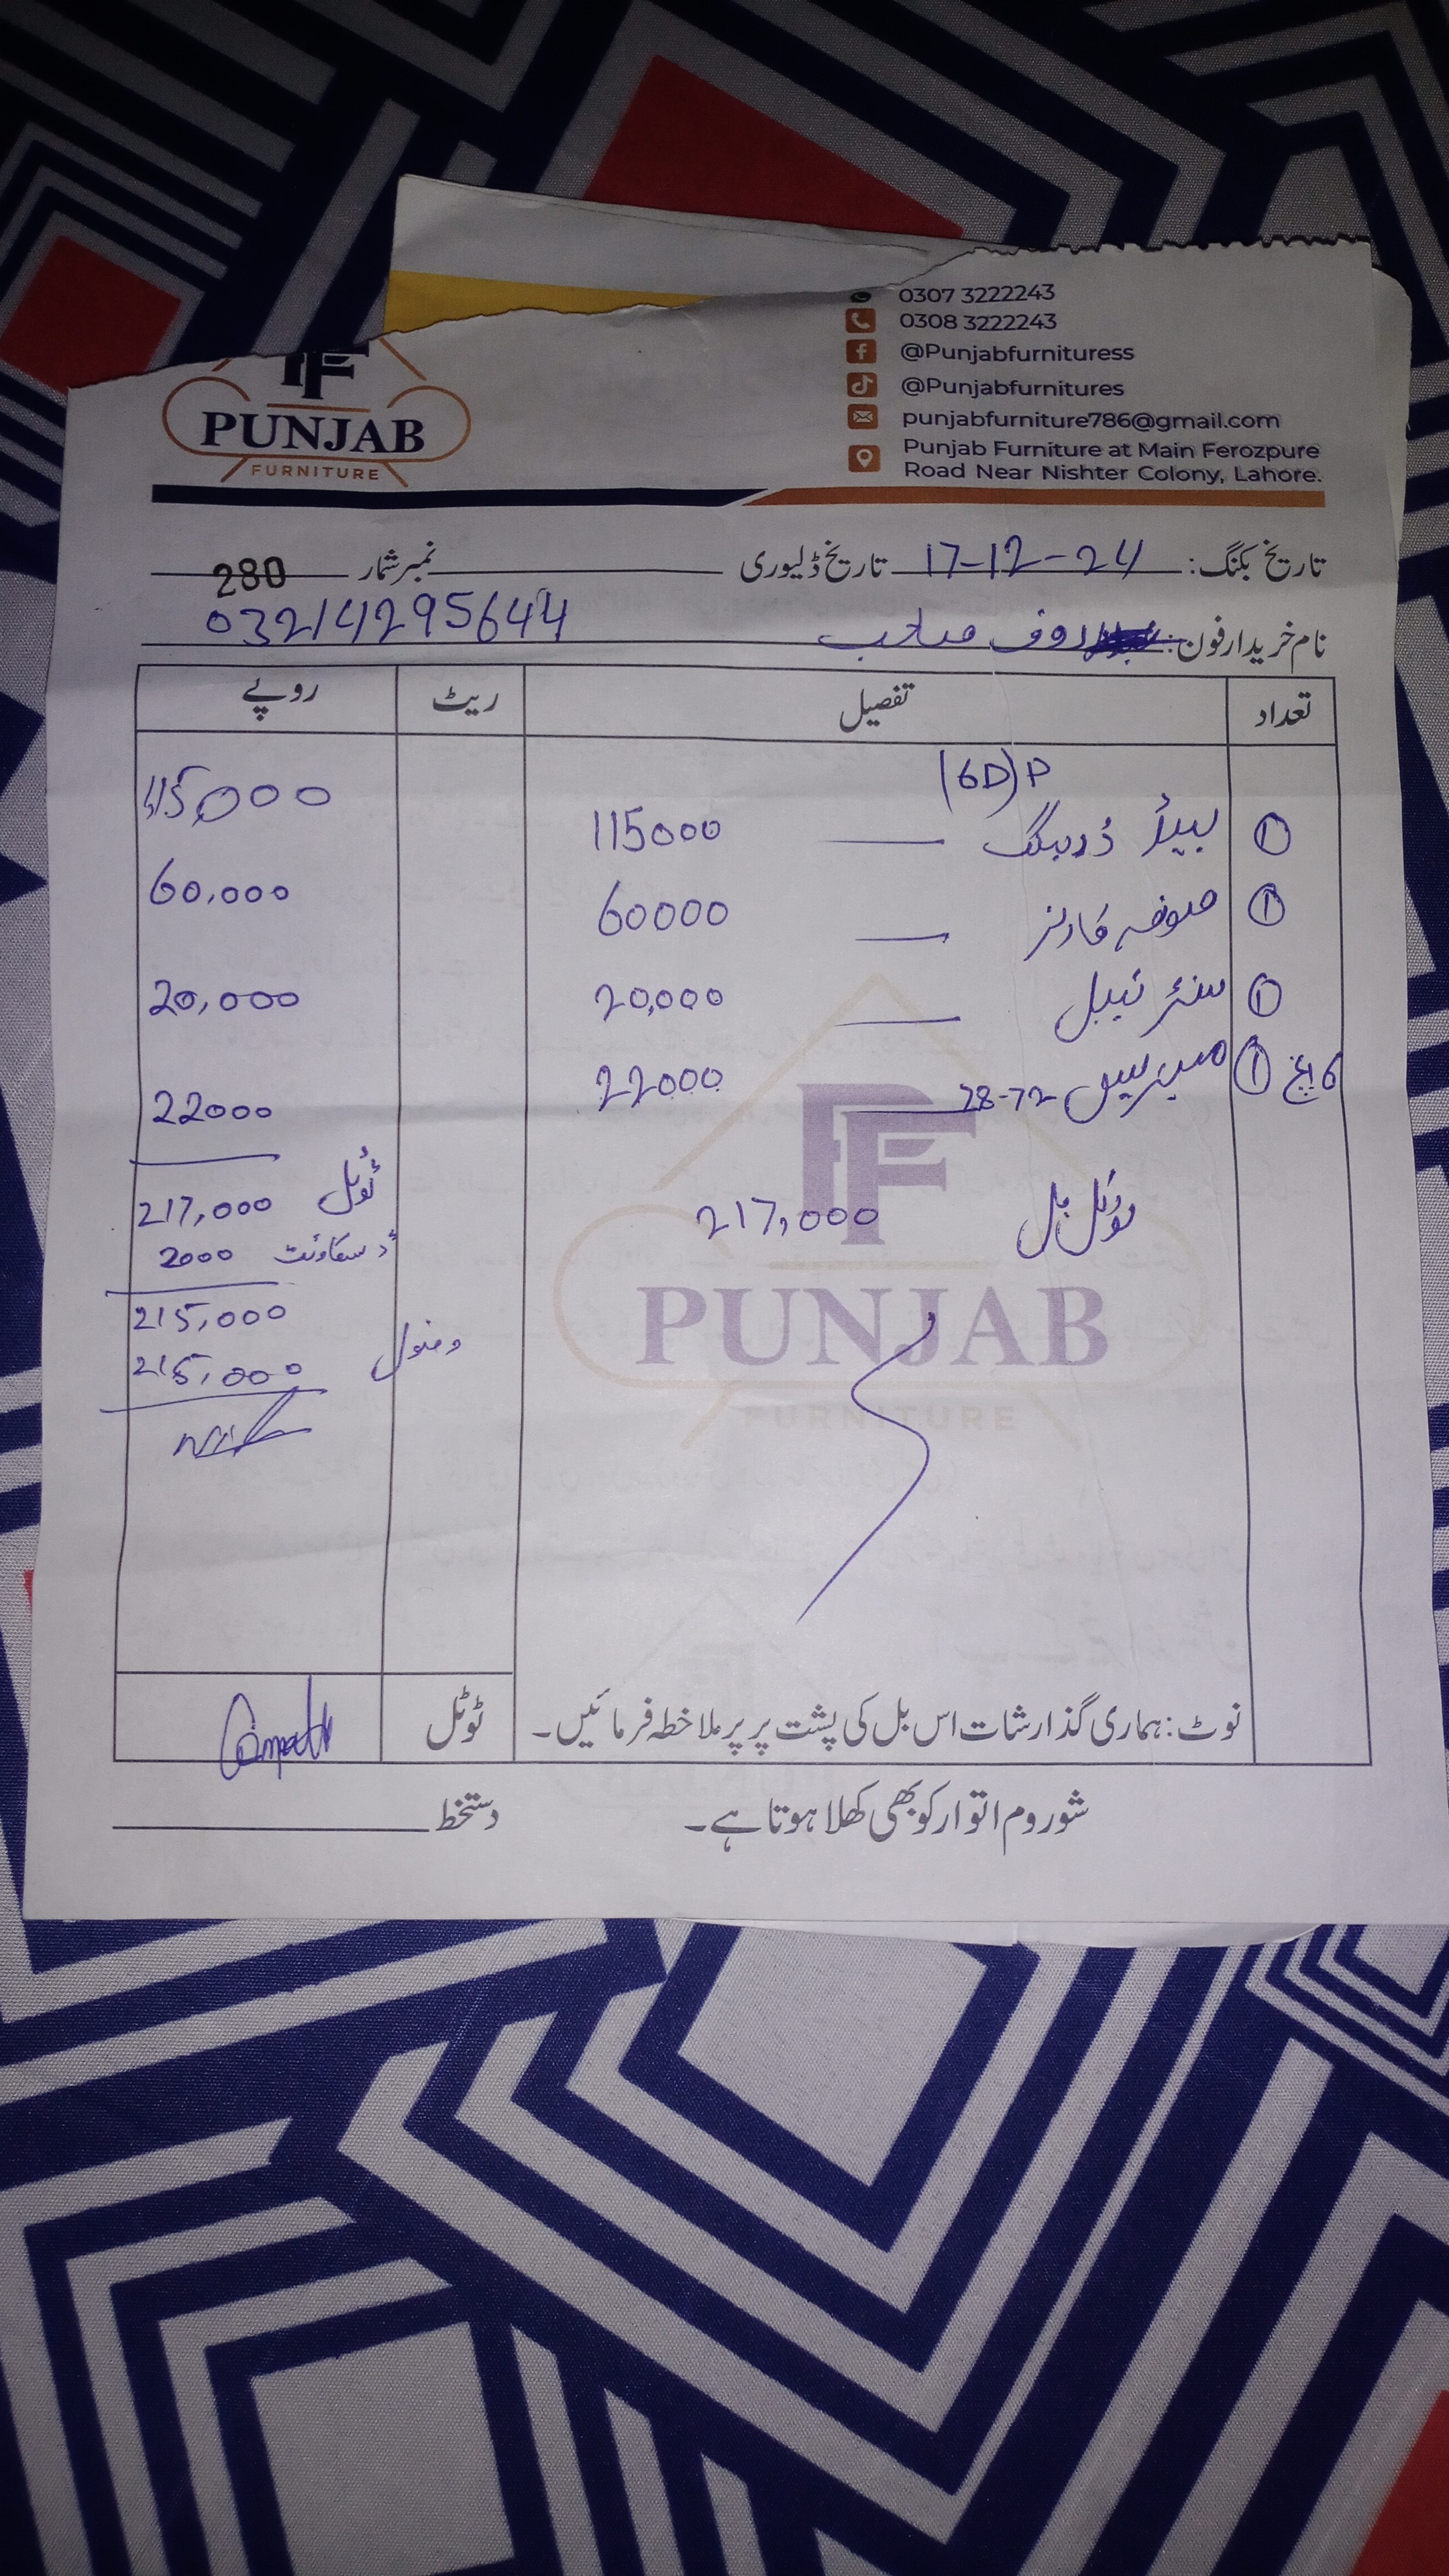 0307 3222243
0308 3222243
@Punjabfurnituress
@Punjabfurnitures
punjabfurniture786@gmail.com
Punjab Furniture at Main Ferozpure
Road Near Nishter Colony, Lahore.
PF
PUNJAB
FURNITURE
تاریخ بکنگ: 17-12-24 تاریخ ڈلیوری نمبر شمار 280
نام خریدار فون: روف صاحب 03214295644
تعداد تفصیل ریٹ روپے
(6D) P
1 بیڈ ڈریسنگ — 115000 115,000
1 صوفہ کارنر — 60000 60,000
1 سنٹر ٹیبل — 20,000 20,000
6 انچ 1 میٹریس 78-72 — 22000 22000
ٹوٹل بل 217,000 ٹوٹل 217,000
ڈسکاونٹ 2000
215,000
وصول 215,000
Nil
PF
PUNJAB
FURNITURE
نوٹ: ہماری گذارشات اس بل کی پشت پر پر ملاخطہ فرمائیں۔ ٹوٹل
شوروم اتوار کو بھی کھلا ہوتا ہے۔ دستخط